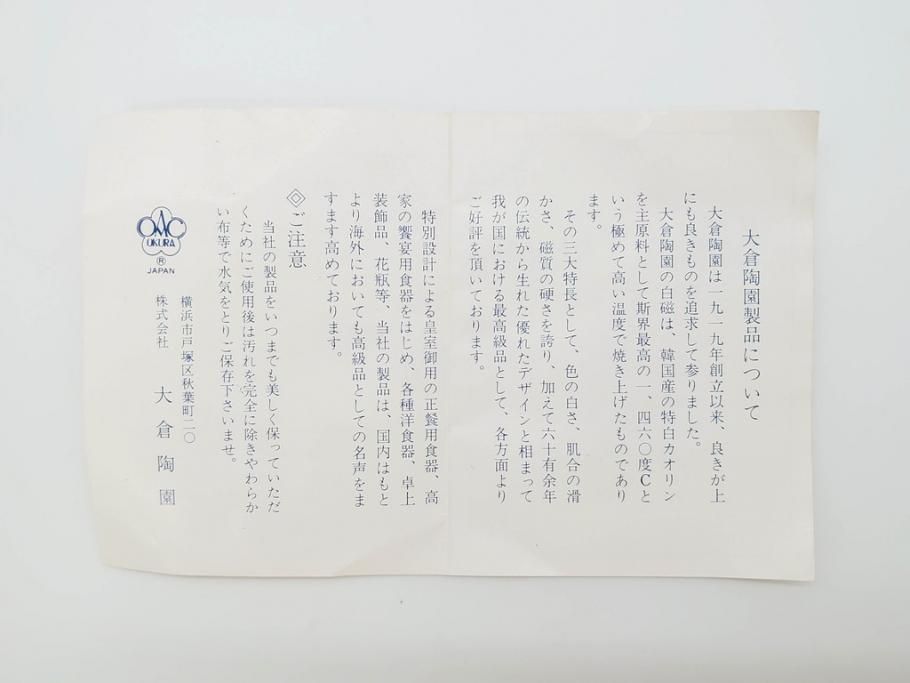 大倉陶園製品について
大倉陶園は一九一九年創立以来、良きが上
にも良きものを追求して参りました。
大倉陶園の白磁は、韓国産の特白カオリン
を主原料として斯界最高の一、四六〇度Cと
いう極めて高い温度で焼き上げたものであり
ます。
その三大特長として、色の白さ、肌合の滑
かさ、磁質の硬さを誇り、加えて六十有余年
の伝統から生れた優れたデザインと相まって
我が国における最高級品として、各方面より
ご好評を頂いております。
特別設計による皇室御用の正餐用食器、高
家の饗宴用食器をはじめ、各種洋食器、卓上
装飾品、花瓶等、当社の製品は、国内はもと
より海外においても高級品としての名声をま
すます高めております。
◎ご注意
当社の製品をいつまでも美しく保っていただ
くためにご使用後は汚れを完全に除きやわらか
い布等で水気をとりご保存下さいませ。
OAC
OKURA
®
JAPAN
横浜市戸塚区秋葉町二〇
株式会社 大倉陶園